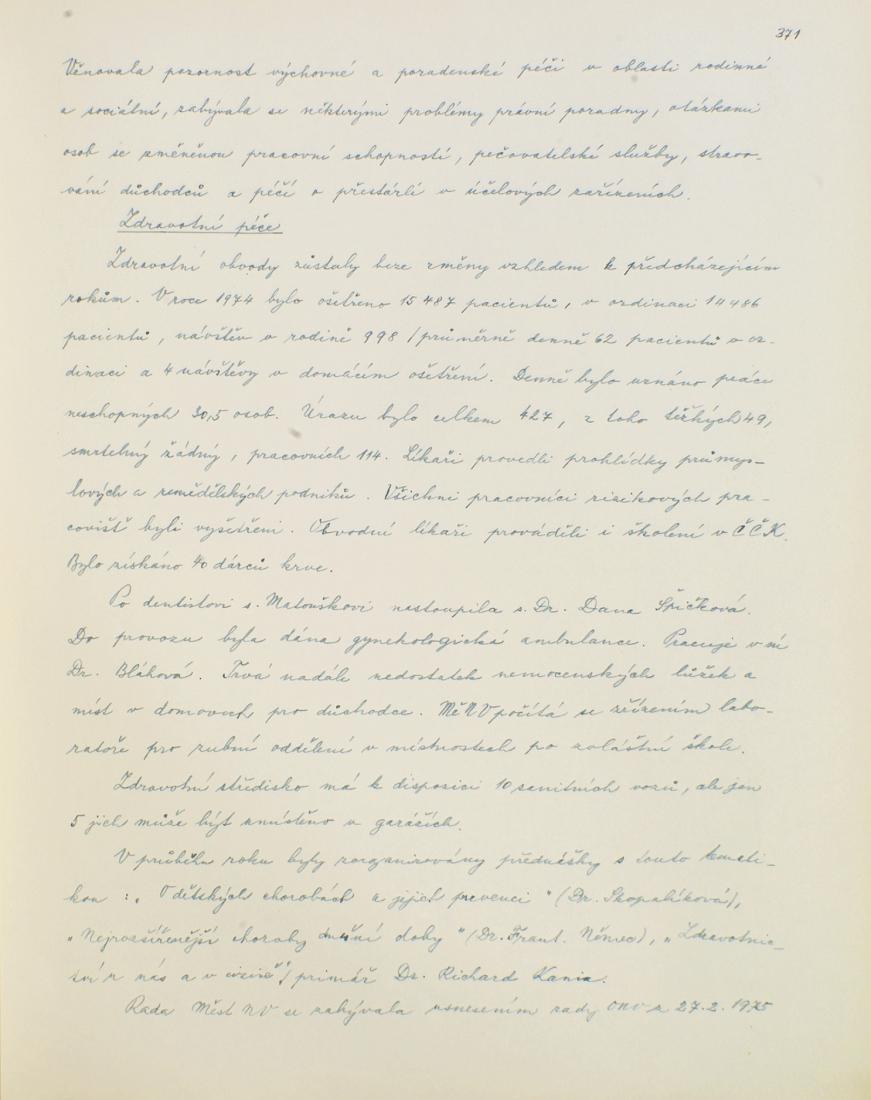 371
Věnovala pozornost výchovné a poradenské péči v oblasti rodinné
a sociální, zabývala se některými problémy právní poradny, otázkami
osob se změněnou pracovní schopností, pečovatelské služby, stravo-
vání důchodců a péčí o přestárlé v účelových zařízeních.
Zdravotní péče
Zdravotní obvody zůstaly beze změny vzhledem k předcházejícím
rokům. V roce 1974 bylo ošetřeno 15 487 pacientů, v ordinaci 14 486
pacientů, návštěv v rodině 998 /průměrně denně 62 pacientů v or-
dinaci a 4 návštěvy v domácím ošetření. Denně bylo uznáno práce
neschopných 30,5 osob. Úrazů bylo celkem 427, z toho těžkých 49,
smrtelný žádný, pracovních 114. Lékaři provedli prohlídky průmys-
lových a zemědělských podniků. Všichni pracovníci rizikových pra-
covišť byli vyšetřeni. Obvodní lékaři prováděli i školení v ČČK.
Bylo získáno 40 dárců krve.
Po dentistovi s. Matouškovi nastoupila s. Dr. Dana Špičková.
Do provozu byla dána gynekologická ambulance. Pracuje v ní
Dr. Bláhová. Trvá nadále nedostatek nemocenských lůžek a
míst v domovech pro důchodce. MěNV počítá se zřízením labo-
ratoře pro zubní oddělení v místnostech po zvláštní škole.
Zdravotní středisko má k disposici 10 sanitních vozů, ale jen
5 jich může být umístěno v garážích.
V průběhu roku byly zorganizovány přednášky s touto temati-
kou: „O dětských chorobách a jejich prevenci" (Dr. Skopalíková),
„Nejrozšířenější choroby dnešní doby" (Dr. Frant. Němec), „Zdravotnic-
tví u nás a v cizině"/ primář Dr. Richard Kania.
Rada Měst NV se zabývala usnesením rady ONV z 27.2. 1975